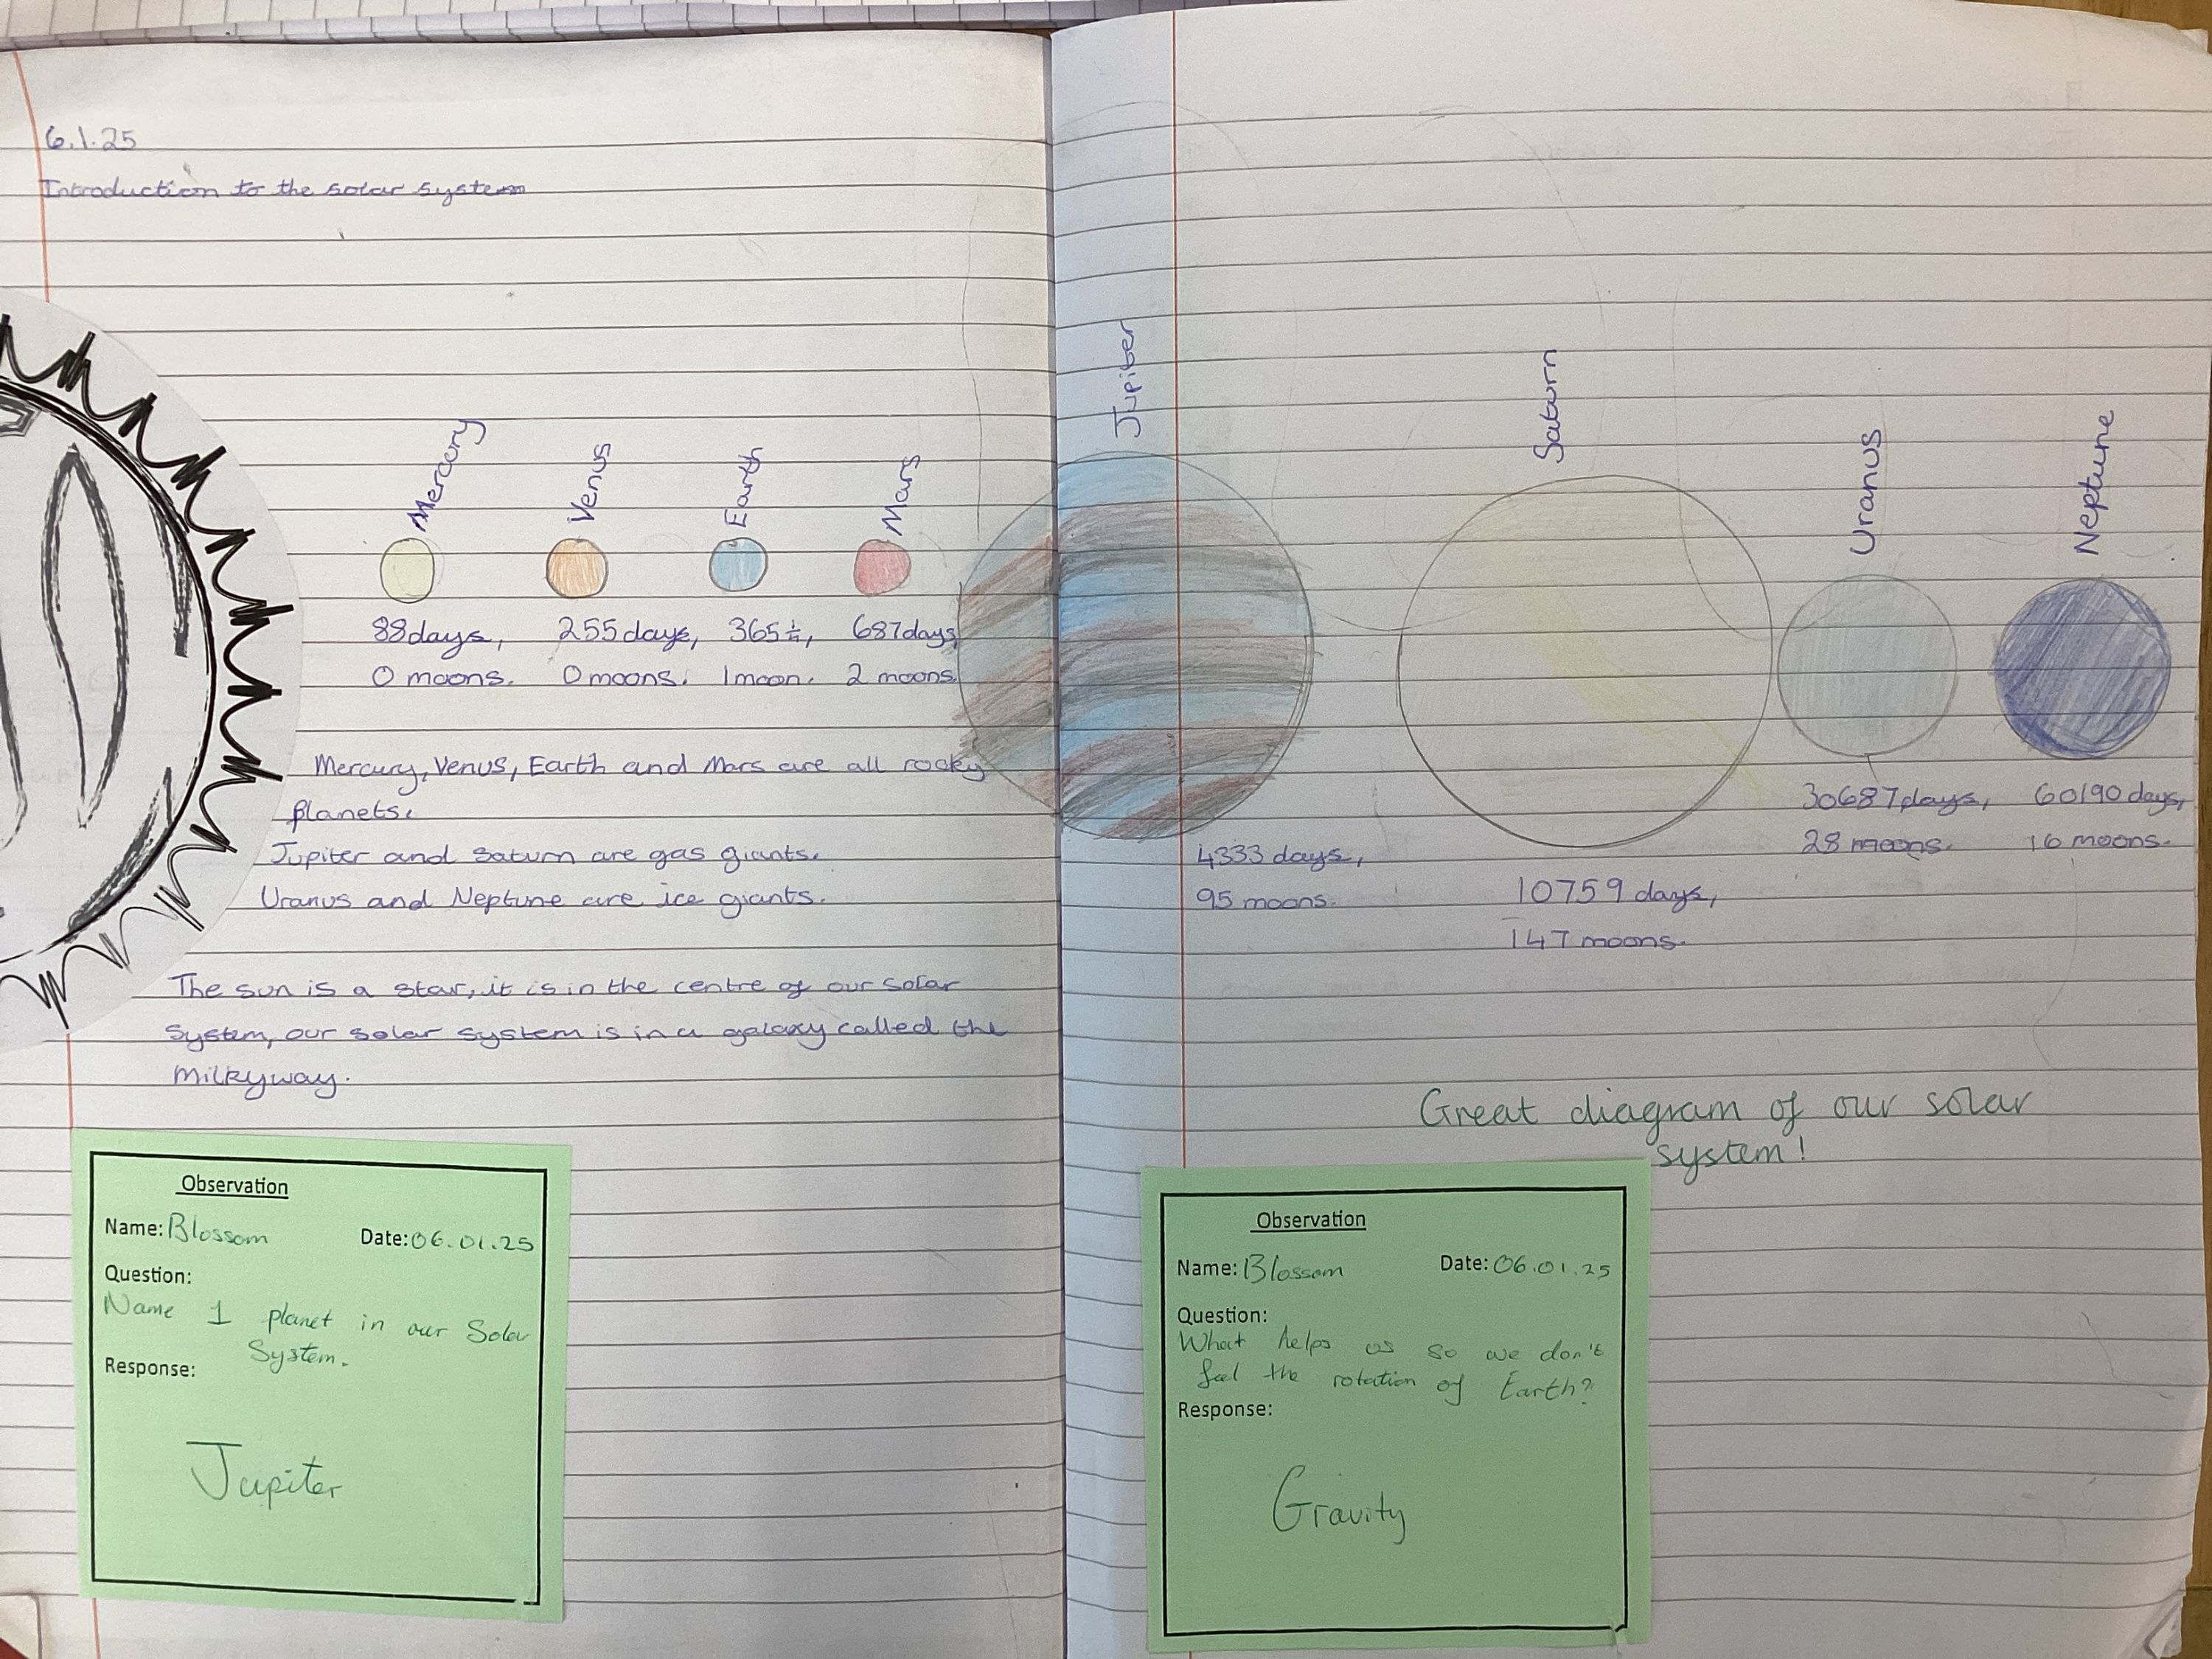 6.1.25
Introduction to the solar system
Mercury
Venus
Earth
Mars
Jupiter
Saturn
Uranus
Neptune
88days, 255days, 365¼, 687days,
0 moons. 0 moons. 1moon. 2 moons.
30687days, 60190 days,
28 moons. 16 moons.
4333 days,
95 moons.
10759 days,
147 moons.
Mercury, Venus, Earth and Mars are all rocky
planets.
Jupiter and saturn are gas giants.
Uranus and Neptune are ice giants.
The sun is a star, it is in the centre of our solar
system, our solar system is in a galaxy called the
Milkyway.
Great diagram of our solar
system!
Observation
Name: Blossom Date: 06.01.25
Question:
Name 1 planet in our Solar
System.
Response:
Jupiter
Observation
Name: Blossom Date: 06.01.25
Question:
What helps us so we don't
feel the rotation of Earth?
Response:
Gravity